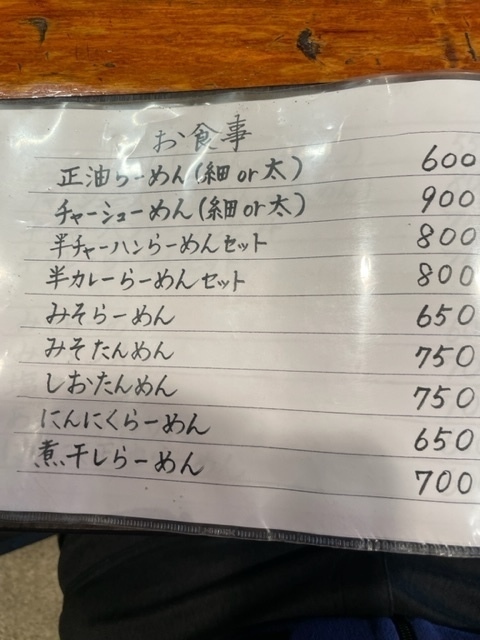 お食事
正油らーめん(細or太) 600
チャーシューめん(細or太) 900
半チャーハンらーめんセット 800
半カレーらーめんセット 800
みそらーめん 650
みそたんめん 750
しおたんめん 750
にんにくらーめん 650
煮干しらーめん 700